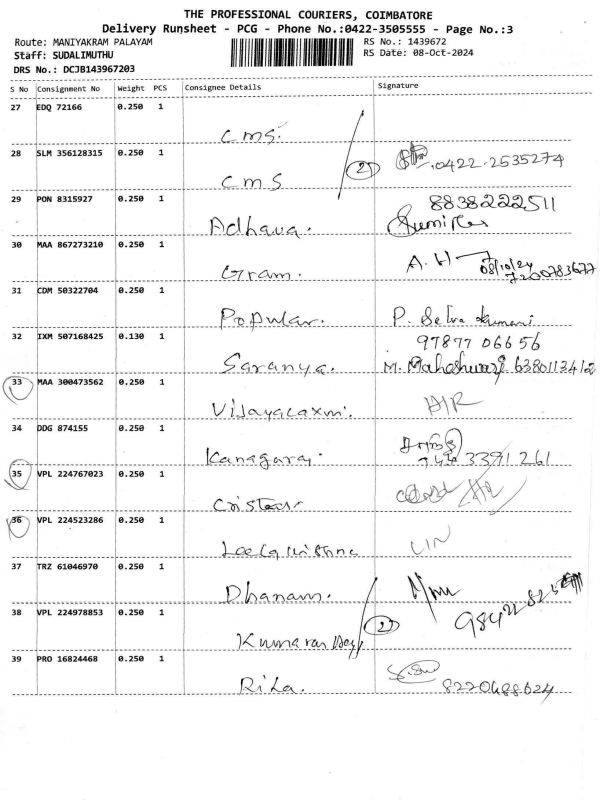 THE PROFESSIONAL COURIERS, COIMBATORE
Delivery Runsheet - PCG - Phone No.:0422-3505555 - Page No.:3
Route: MANIYAKRAM PALAYAM
RS No.: 1439672
Staff: SUDALIMUTHU
RS Date: 08-Oct-2024
DRS No.: DCJB143967203
S No Consignment No Weight PCS Consignee Details Signature
27 EDQ 72166 0.250 1
cms.
28 SLM 356128315 0.250 1
2 0422-2535274
cms
29 PON 8315927 0.250 1
8838222511
Adhava.
30 MAA 867273210 0.250 1
A. H 08/10/24
Gram. 7200783677
31 CDM 50322704 0.250 1
Popular. P. Selva Kumari
32 IXM 507168425 0.130 1
97877 06656
Saranya. M. Maheshwari 6380113412
33 MAA 300473562 0.250 1
Vijayalaxmi.
34 DDG 874155 0.250 1
Kanagaraj. 3391261
35 VPL 224767023 0.250 1
36 VPL 224523286 0.250 1
Leela
37 TRZ 61046970 0.250 1
Dhanam.
38 VPL 224978853 0.250 1
2
Kumaran
39 PRO 16824468 0.250 1
Rita. 8220688624